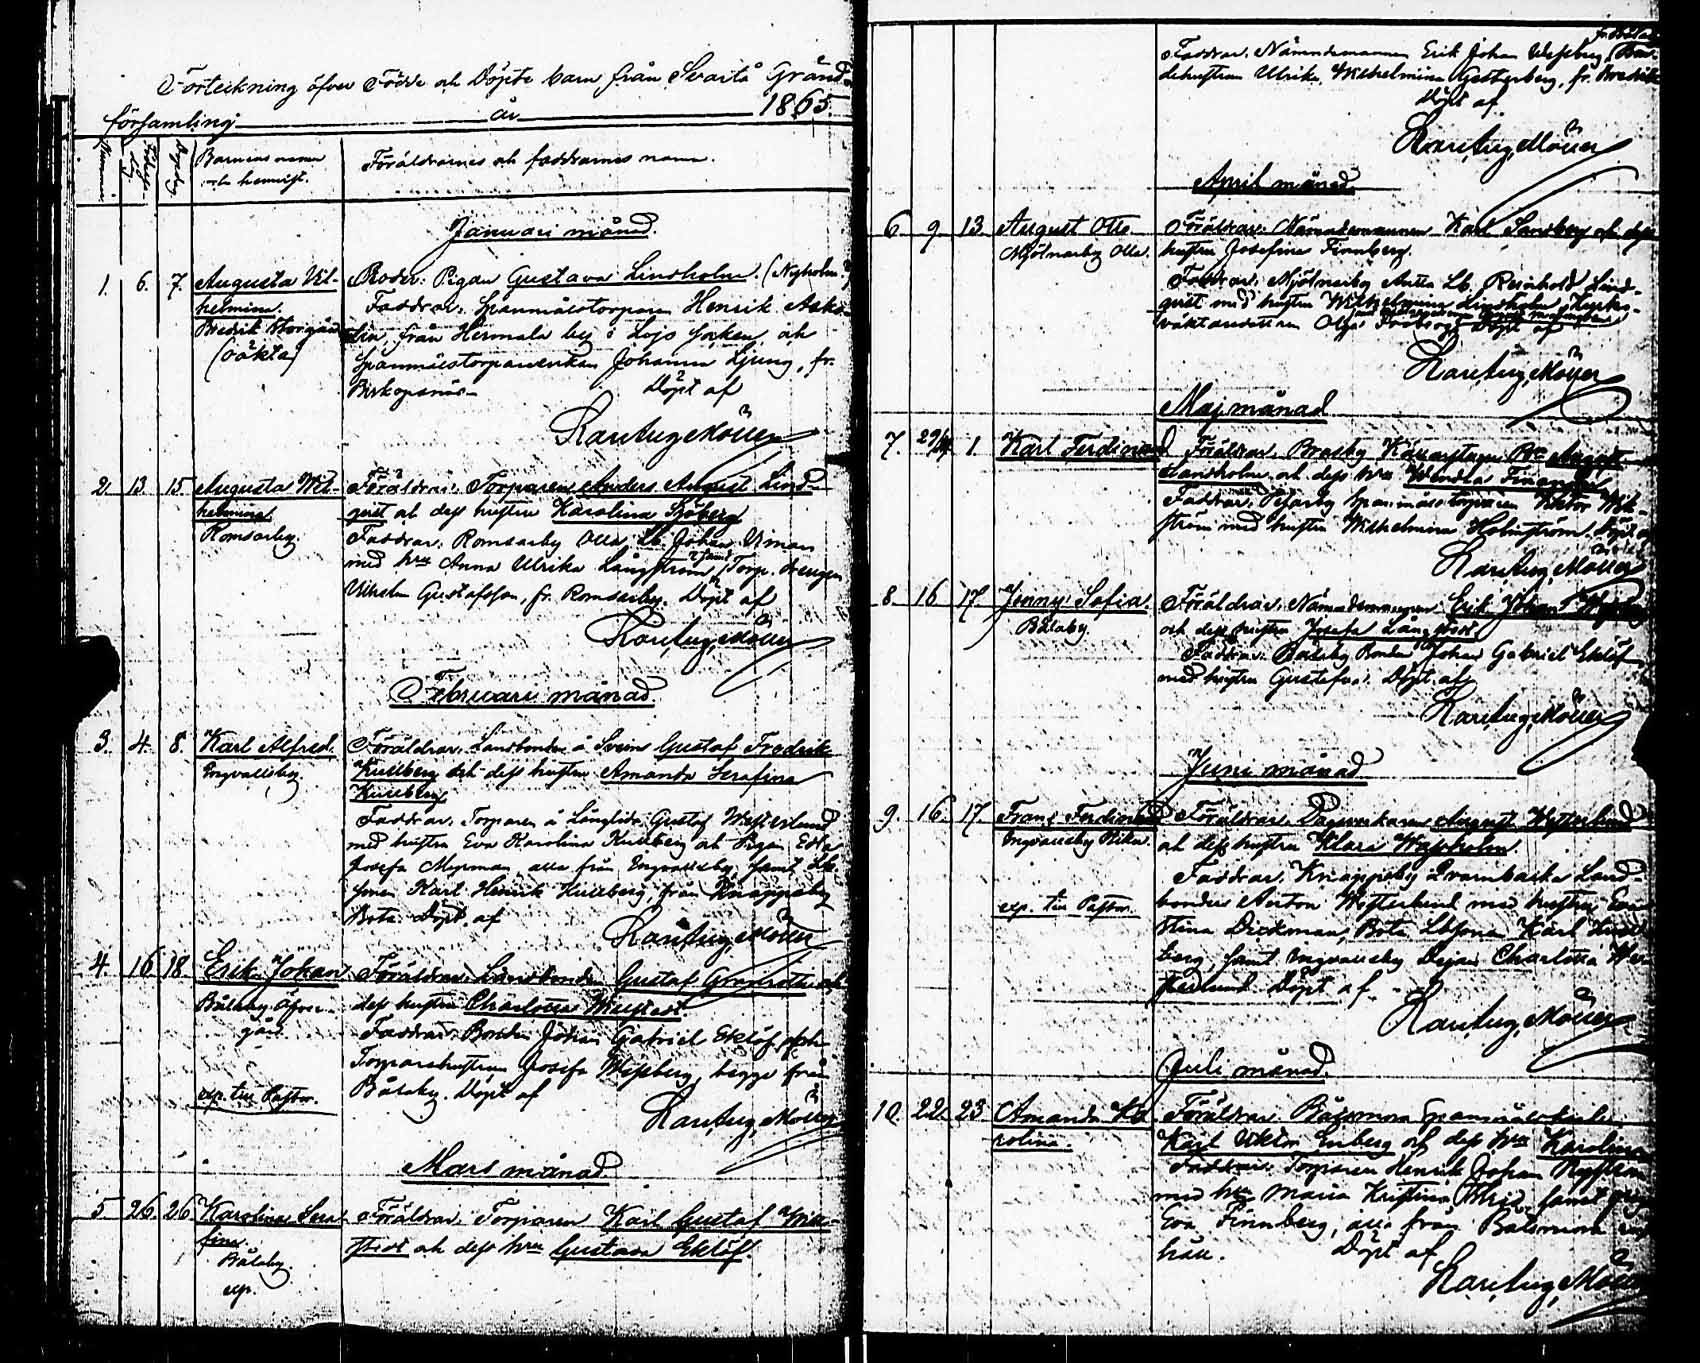 Förteckning öfver Födde och Döpte barn från Svartå Gränd
församling år 1865.
Nummer
Födelsedag
Dopdag
Barnens namn
och hemvist.
Föräldrarnes och faddrarnes namn.
Januari månad.
1. 6. 7. Augusta Vil-
helmina.
Bredvik Storgård
(oäkta)
Moder: Pigan Gustava Lindholm. (Nyholm?)
Faddrar: Spanmålstorparen Henrik
från Hermala by i Lojo socken, och
Johanna Ljung, fr.
Biskopsnäs. Döpt af
Karl Aug. Möller
2. 13. 15. Augusta Wil-
helmina
Romsarby.
Föräldrar: Torparen Anders August Lind-
qvist och dess hustru Karolina Sjöberg
Faddrar: Romsarby Olla Lb. Johan Uiman
med hru Anna Ulrika Långström, samt Torp. drengen
Vilhelm Gustafsson, fr. Romsarby. Döpt af
Karl Aug. Möller
Februari månad.
3. 4. 8. Karl Alfred.
Engvallsby.
Föräldrar: Landbonden å Svein Gustaf Fredrik
Kullberg och dess hustru Amanda Serafina
Kullberg
Faddrar: Torparen å Långlida Gustaf Westerlund
med hustru Eva Karolina Kullberg och Pigan Edla
Josefa Myrman, alla från Engvallsby, samt Lb.
sonen Karl Henrik Kullberg, från Knappsby
Bota. Döpt af
Karl Aug. Möller
4. 16 18. Erik Johan
Bålaby Öfver-
gård
exp. till Pastor.
Föräldrar: Landbonden Gustaf Grönroth och
dess hustru Charlotta Willstedt
Faddrar: Bonden Johan Gabriel Eklöf och
Torparehustrun Josefa Wessberg, begge från
Bålaby. Döpt af
Karl Aug. Möller
Mars månad.
5 26. 26 Karolina Sera-
fina.
Bålaby.
exp.
Föräldrar: Torparen Karl Gustaf Will-
stedt och dess hru Gustava Eklöf.
Faddrar: Nämndemannen Erik Johan Wessberg
hustrun Ulrika Wilhelmina Gesterberg, fr. Bredvik
Döpt af
Karl Aug. Möller
April månad.
6. 9. 13. August Otto
Mjölnarby Olla.
Föräldrar: Nämndemannen Karl Sandberg och dess
hustru Josefina Finnberg.
Faddrar: Mjölnarby Lb. Reinhold Lind-
qvist med hustru Wilhelmina Lindholm,
Olga Döpt af
Karl Aug. Möller
Maj månad
7. 29/4 1. Karl Ferdinand
Föräldrar: August
Sandholm och dess hru Wendla Finnberg
Faddrar: Spanmålstorparen Viktor Wik-
ström med hustru Wilhelmina Holmström. Döpt af
Karl Aug. Möller
8. 16 17. Jenny Sofia.
Bålaby.
Föräldrar: Nämndemannen Erik Johan Wessberg
och dess hustru Josefa Långstedt
Faddrar: Bålaby Bonden Johan Gabriel Eklöf
med hustru Gustafva. Döpt af
Karl Aug. Möller
Juni månad
9. 16. 17. Frans Ferdinand
Engvallsby
exp. till Pastor.
Föräldrar: Dagsverkaren August Westerlund
och dess hustru Klara Washolm.
Faddrar: Knappsby Qvarnbacka Land-
bonden Anton Westerlund med hustru Eva
Stina Dickman, Bota Lbsonen Karl Kull-
berg, samt Engvallsby Dejan Charlotta Wes-
terlund Döpt af
Karl Aug. Möller
Juli månad.
10. 22. 23 Amanda Ka-
rolina.
Föräldrar: Bålsmora
Karl Viktor Enberg och dess hru Karolina
Faddrar: Torparen Henrik Johan
med hru Maria Kristina samt pigan
Eva Finnberg, alla från Bålsmora
håll. Döpt af
Karl Aug. Möller